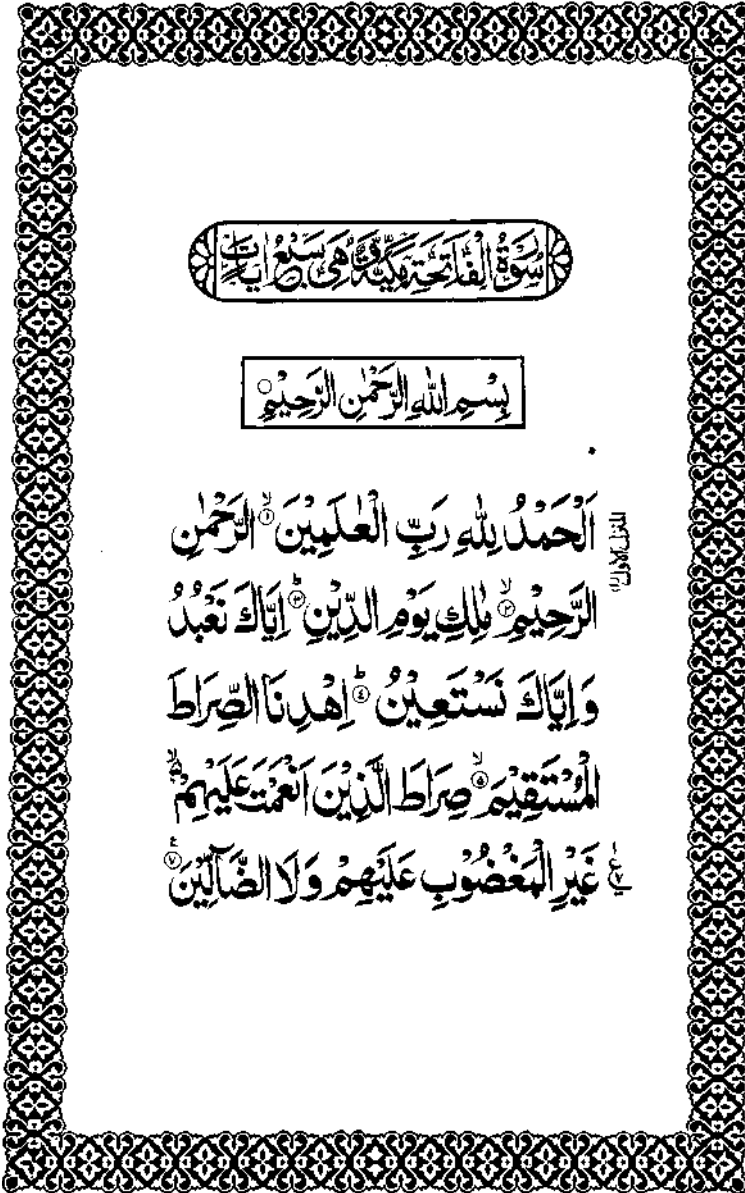 سُوْرَةُ الْفَاتِحَةِ مَكِّيَّةٌ وَّهِىَ سَبْعُ اٰيَاتٍ
بِسْمِ اللّٰهِ الرَّحْمٰنِ الرَّحِيْمِ۝
اَلْحَمْدُ لِلّٰهِ رَبِّ الْعٰلَمِيْنَ ۙ﴿۱﴾ الرَّحْمٰنِ
المنزل الاول
الرَّحِيْمِ ۙ﴿۲﴾ مٰلِكِ يَوْمِ الدِّيْنِ ؕ﴿۳﴾ اِيَّاكَ نَعْبُدُ
وَاِيَّاكَ نَسْتَعِيْنُ ؕ﴿٤﴾ اِهْدِنَا الصِّرَاطَ
الْمُسْتَقِيْمَ ۙ﴿۵﴾ صِرَاطَ الَّذِيْنَ اَنْعَمْتَ عَلَيْهِمْ ۙ
غَيْرِ الْمَغْضُوْبِ عَلَيْهِمْ وَلَا الضَّآلِّيْنَ ﴿۷﴾